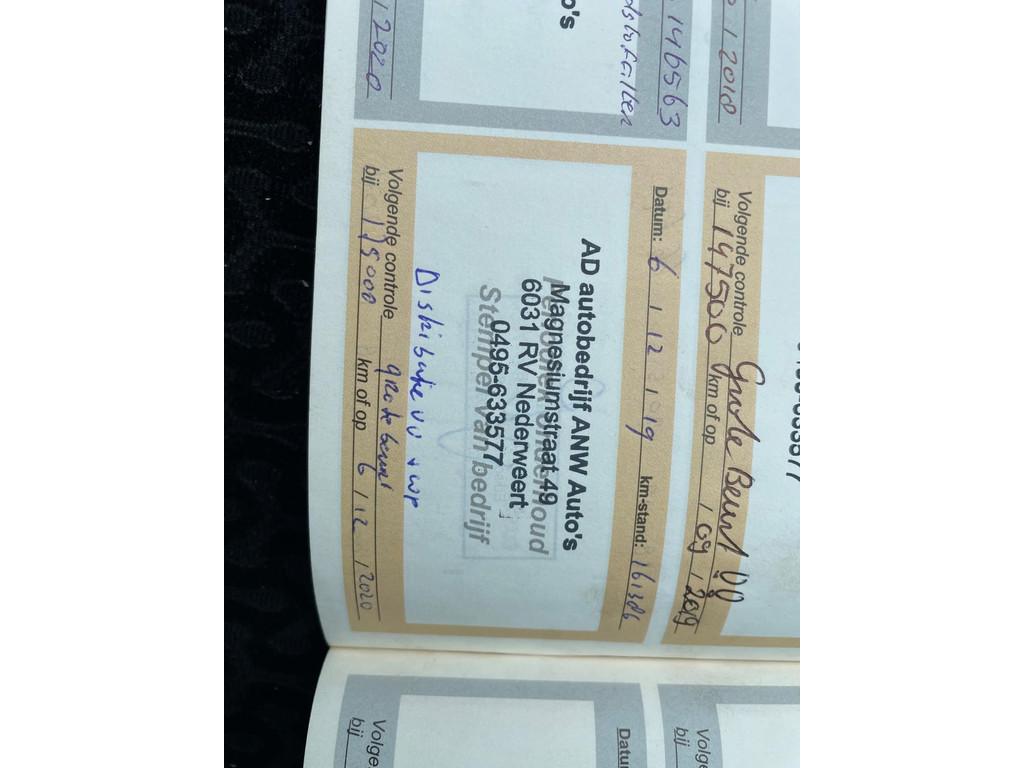 1 2018
146563
o's
1 2020
Volgende controle Grote Beurt !!
bij 147500 km of op / 09 / 2019
Datum: 6 / 12 / 19 km-stand: 161386
AD autobedrijf ANW Auto's
Periodiek onderhoud
Magnesiumstraat 49
6031 RV Nederweert
0495-633577
Stempel van bedrijf
Distributie vv + wp
Volgende controle grote beurt
bij 175000 km of op 6 / 12 / 2020
Volge
bij
Datu
Volge
bij